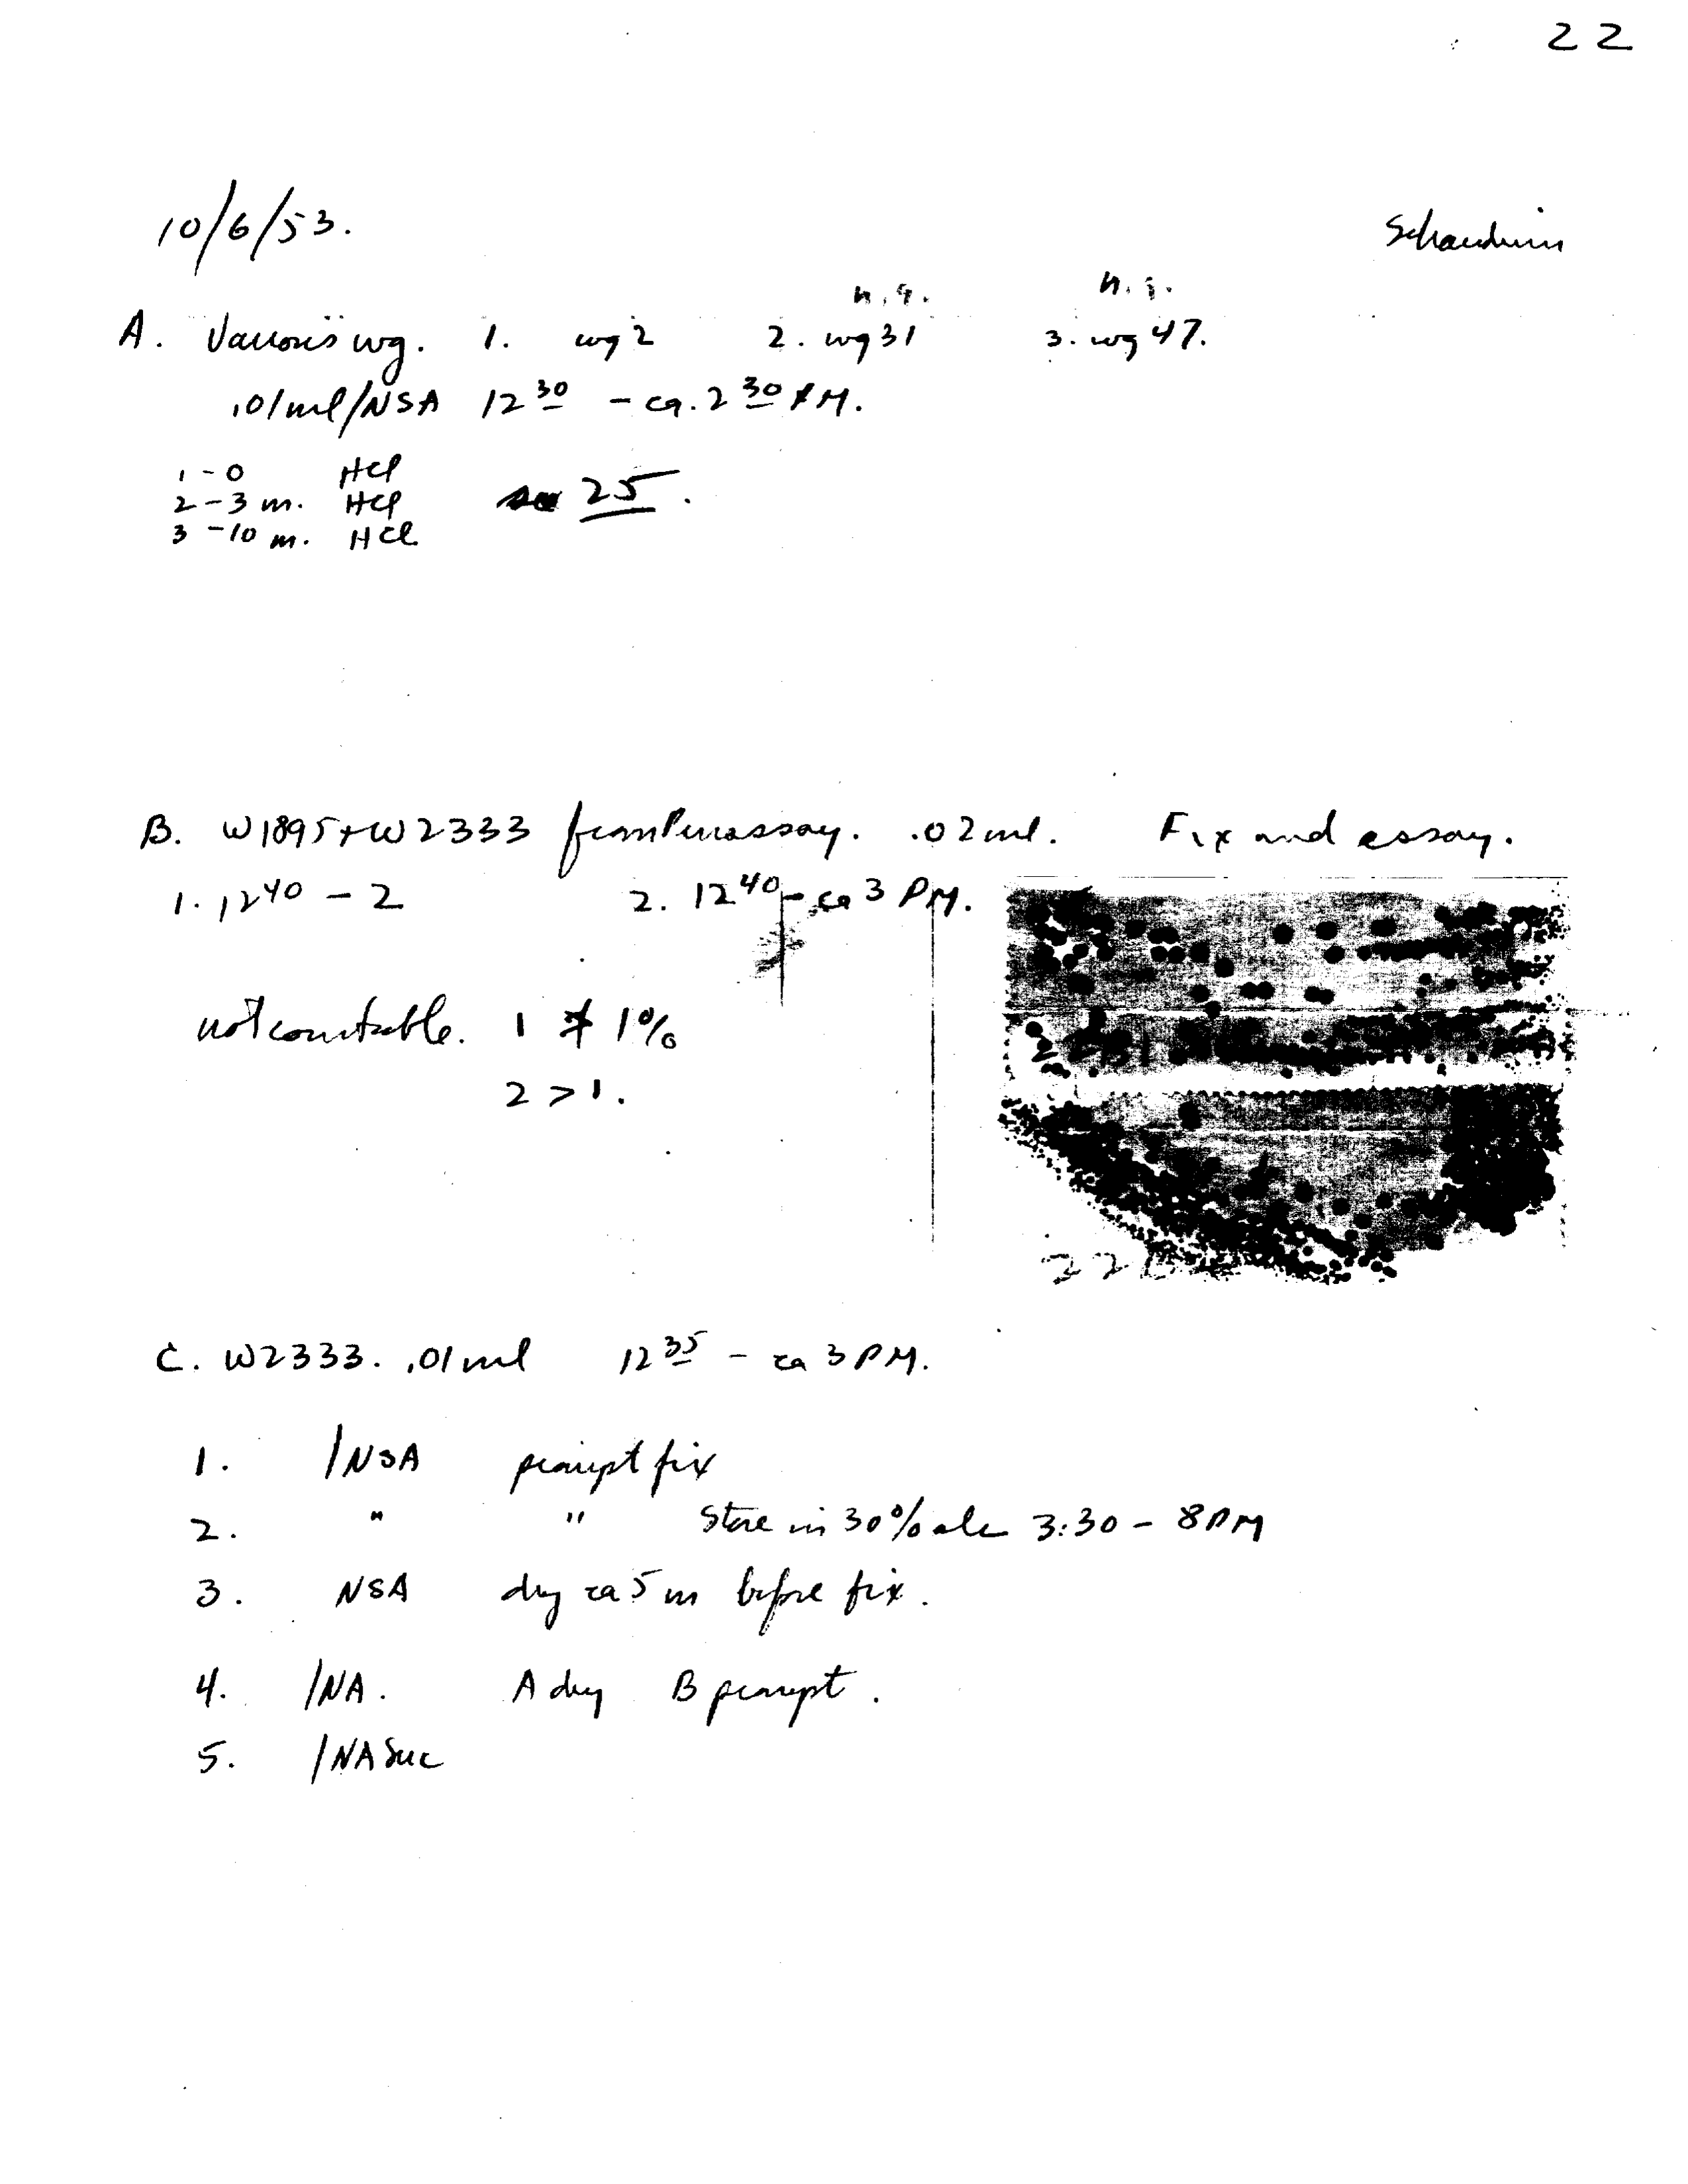 22
10/6/53. Schaudinn
n.g. n.g.
A. Various wg. 1. wg 2 2. wg 31 3. wg 47.
.01ml/NSA 12 30 - ca. 2 30 PM.
1 - 0 HCl
2 - 3 m. HCl 25.
3 - 10 m. HCl
B. W1895 + W2333 from Penassay. .02 ml. Fix and assay.
1. 12 40 - 2 2. 12 40 - ca 3 PM.
not countable. 1 ≯ 1%
2 > 1.
22
C. W2333. .01 ml 12 35 - ca 3 PM.
1. /NSA prompt fix
2. " " Store in 30% alc 3:30 - 8 PM
3. NSA dry ca 5 m before fix.
4. /NA. A dry B prompt.
5. /NA Suc